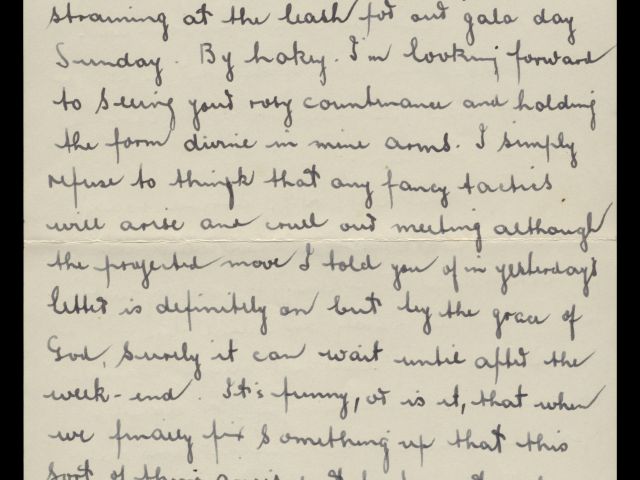 straining at the leash for our gala day
Sunday. By hokey. I'm looking forward
to seeing your rosy countenance and holding
the form divine in mine arms. I simply
refuse to think that any fancy tactics
will arise and cruel our meeting although
the projected move I told you of in yesterday's
letter is definitely on but by the grace of
God, surely it can wait until after the
week-end. It's funny, or is it, that when
we finally fix something up that this
sort of thing